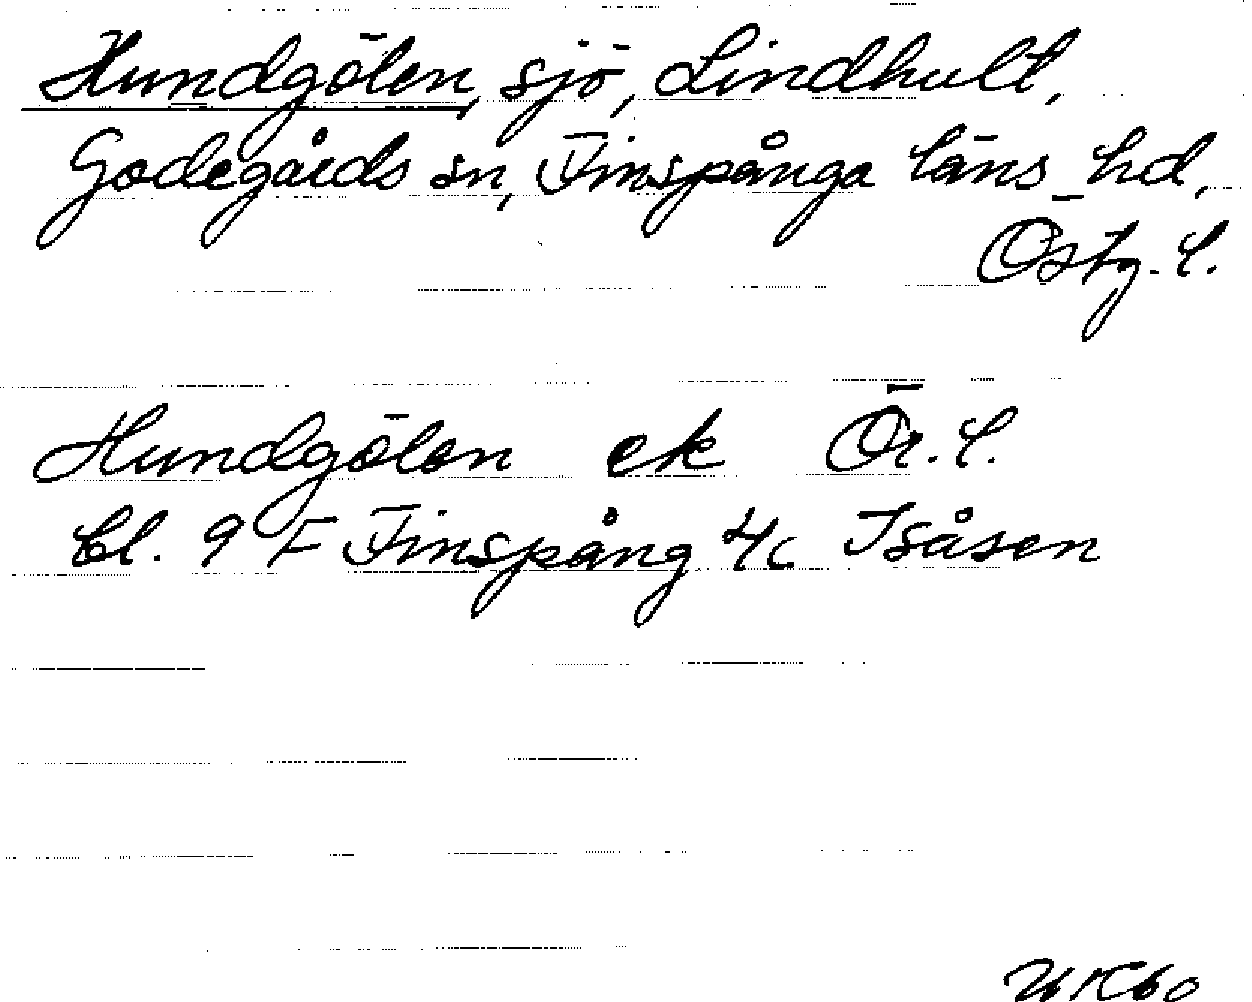 Hundgölen, sjö, Lindhult,
Godegårds sn, Finspånga läns hd,
Östg. l.
Hundgölen ek Ör. l.
bl. 9 F Finspång 4c Isåsen